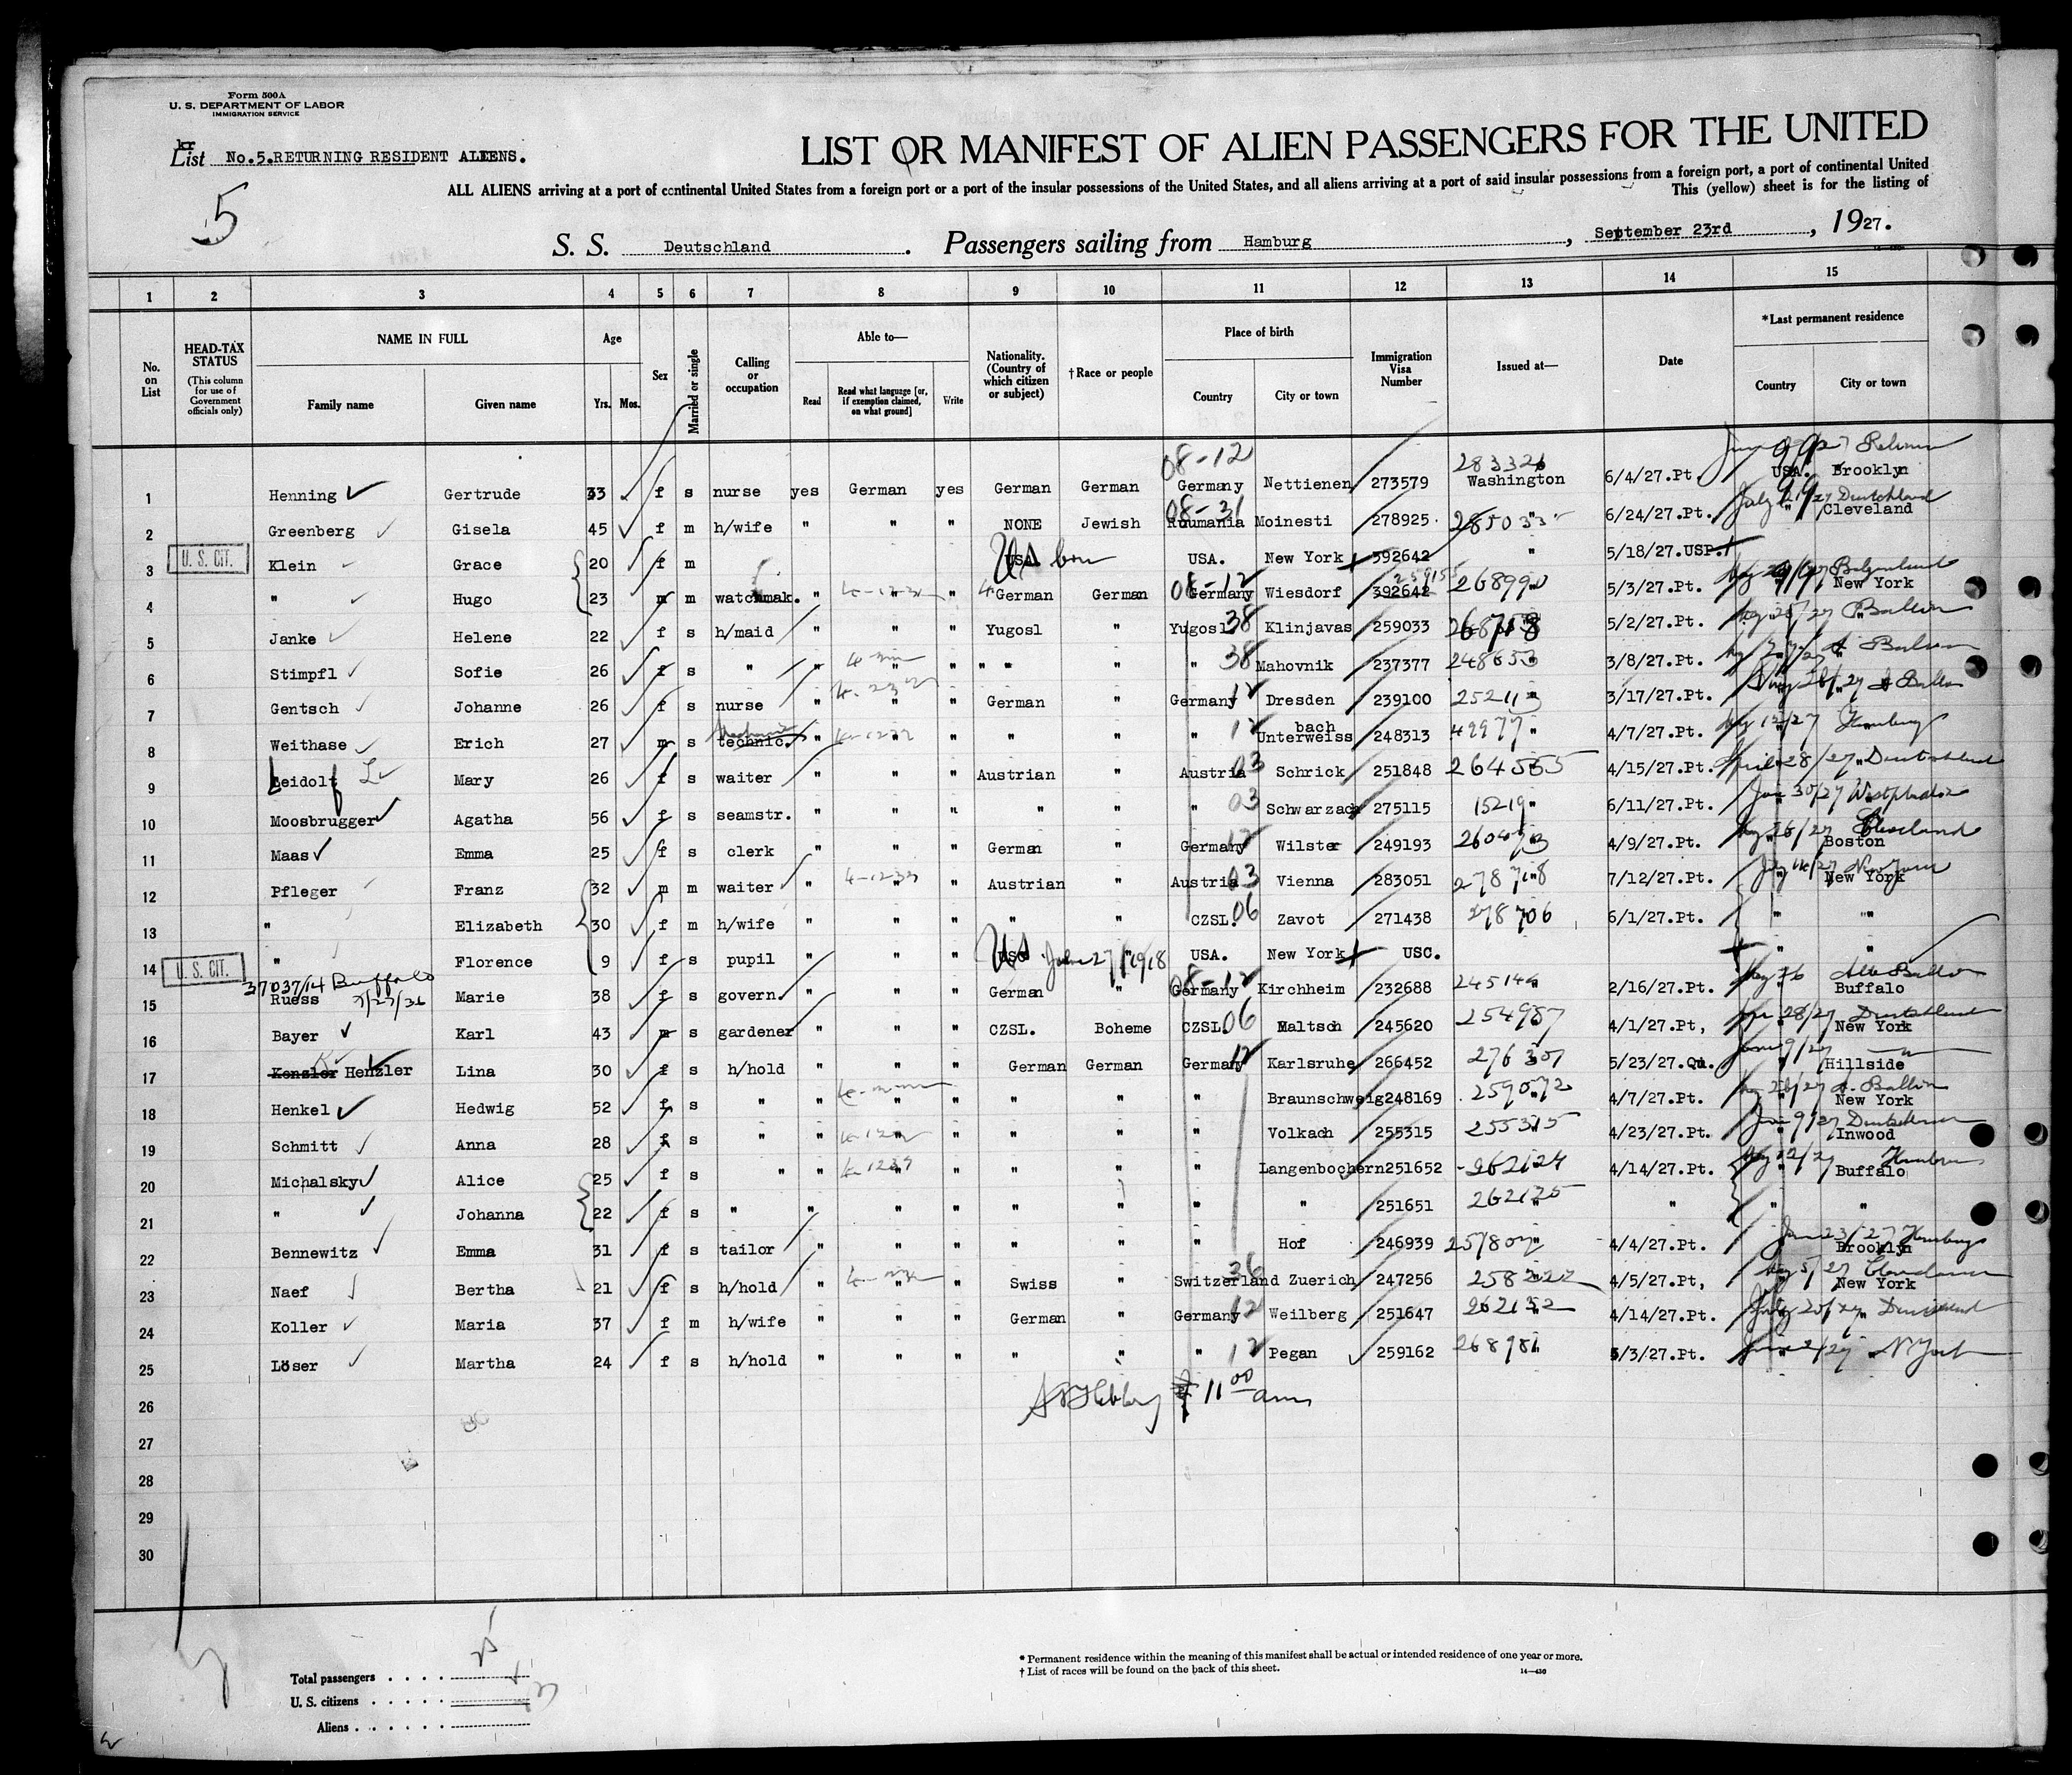 Form 500A
U. S. DEPARTMENT OF LABOR
IMMIGRATION SERVICE
kr
List No.5.RETURNING RESIDENT ALIENS.
5
LIST OR MANIFEST OF ALIEN PASSENGERS FOR THE UNITED
ALL ALIENS arriving at a port of continental United States from a foreign port or a port of the insular possessions of the United States, and all aliens arriving at a port of said insular possessions from a foreign port, a port of continental United
This (yellow) sheet is for the listing of
S. S. Deutschland. Passengers sailing from Hamburg, September 23rd, 1927.
1 2 3 4 5 6 7 8 9 10 11 12 13 14 15
No. on List
HEAD-TAX STATUS (This column for use of Government officials only)
NAME IN FULL
Family name Given name
Age
Yrs. Mos.
Sex
Married or single
Calling or occupation
Able to—
Read Read what language [or, if exemption claimed, on what ground] Write
Nationality. (Country of which citizen or subject)
†Race or people
Place of birth
Country City or town
Immigration Visa Number
Issued at—
Date
*Last permanent residence
Country City or town
1 Henning Gertrude 33 f s nurse yes German yes German German 08-12 Germany Nettienen 273579 283326 Washington 6/4/27.Pt. USA. Brooklyn
2 Greenberg Gisela 45 f m h/wife " " " NONE Jewish 08-31 Roumania Moinesti 278925 " 6/24/27.Pt. July " Deutschland Cleveland
3 U. S. CIT. Klein Grace 20 f m USA US born USA. New York 392642 " 5/18/27.USP.
4 " Hugo 23 m m watchmak. " " " German German 08-12 Germany Wiesdorf 392642 259155 268990 5/3/27.Pt. " New York
5 Janke Helene 22 f s h/maid " " " Yugosl " Yugosl 38 Klinjavas 259033 268718 5/2/27.Pt. "
6 Stimpfl Sofie 26 f s " " " " " " " " 38 Mahovnik 237377 248653 3/8/27.Pt. "
7 Gentsch Johanne 26 f s nurse " " " German " Germany 12 Dresden 239100 252113 3/17/27.Pt. "
8 Weithase Erich 27 m s technic. " " " " " " 12 Unterweissbach 248313 49977 " 4/7/27.Pt. " Hamburg
9 Leidolf L Mary 26 f s waiter " " " Austrian " Austria 03 Schrick 251848 264565 4/15/27.Pt. April 28/27 Deutschland
10 Moosbrugger Agatha 56 f s seamstr. " " " " " " 03 Schwarzach 275115 15219 " 6/11/27.Pt. " Westphalia
11 Maas Emma 25 f s clerk " " " German " Germany 12 Wilster 249193 260473 4/9/27.Pt. " Cleveland Boston
12 Pfleger Franz 32 m m waiter " " " Austrian " Austria 03 Vienna 283051 278718 7/12/27.Pt. July 14/27 New York New York
13 " Elizabeth 30 f m h/wife " " " " " CZSL. 06 Zavot 271438 278706 6/1/27.Pt. " "
14 U. S. CIT. " Florence 9 f s pupil " " " USC US June 27/1918 " USA. New York USC. " "
15 37037/14 Buffalo 7/27/36 Ruess Marie 38 f s govern. " " " German " 08-12 Germany Kirchheim 232688 245146 2/16/27.Pt. " Buffalo
16 Bayer Karl 43 m s gardener " " " CZSL. Boheme CZSL. 06 Maltsch 245620 254987 4/1/27.Pt, " 28/27 Deutschland New York
17 Kenzler Henzler Lina 30 f s h/hold " " " German German Germany 12 Karlsruhe 266452 276307 5/23/27.Qu. June 9/27 " Hillside
18 Henkel Hedwig 52 f s " " " " " " " Braunschweig 248169 259072 4/7/27.Pt. " A. Ballin New York
19 Schmitt Anna 28 f s " " " " " " " Volkach 255315 255315 4/23/27.Pt. " Inwood
20 Michalsky Alice 25 f s " " " " " " " Langenbochern 251652 262124 4/14/27.Pt. " Buffalo
21 " Johanna 22 f s " " " " " " " " 251651 262125 " " "
22 Bennewitz Emma 31 f s tailor " " " " " " Hof 246939 257807 4/4/27.Pt. Hamburg Brooklyn
23 Naef Bertha 21 f s h/hold " " " Swiss " Switzerland 36 Zuerich 247256 258222 4/5/27.Pt, " New York
24 Koller Maria 37 f m h/wife " " " German " Germany 12 Weilberg 251647 262132 4/14/27.Pt. "
25 Löser Martha 24 f s h/hold " " " " " " 12 Pegan 259162 268981 5/3/27.Pt. " N York
26
11 00 am
27
28
29
30
Total passengers
U. S. citizens
Aliens
* Permanent residence within the meaning of this manifest shall be actual or intended residence of one year or more.
† List of races will be found on the back of this sheet. 14—430